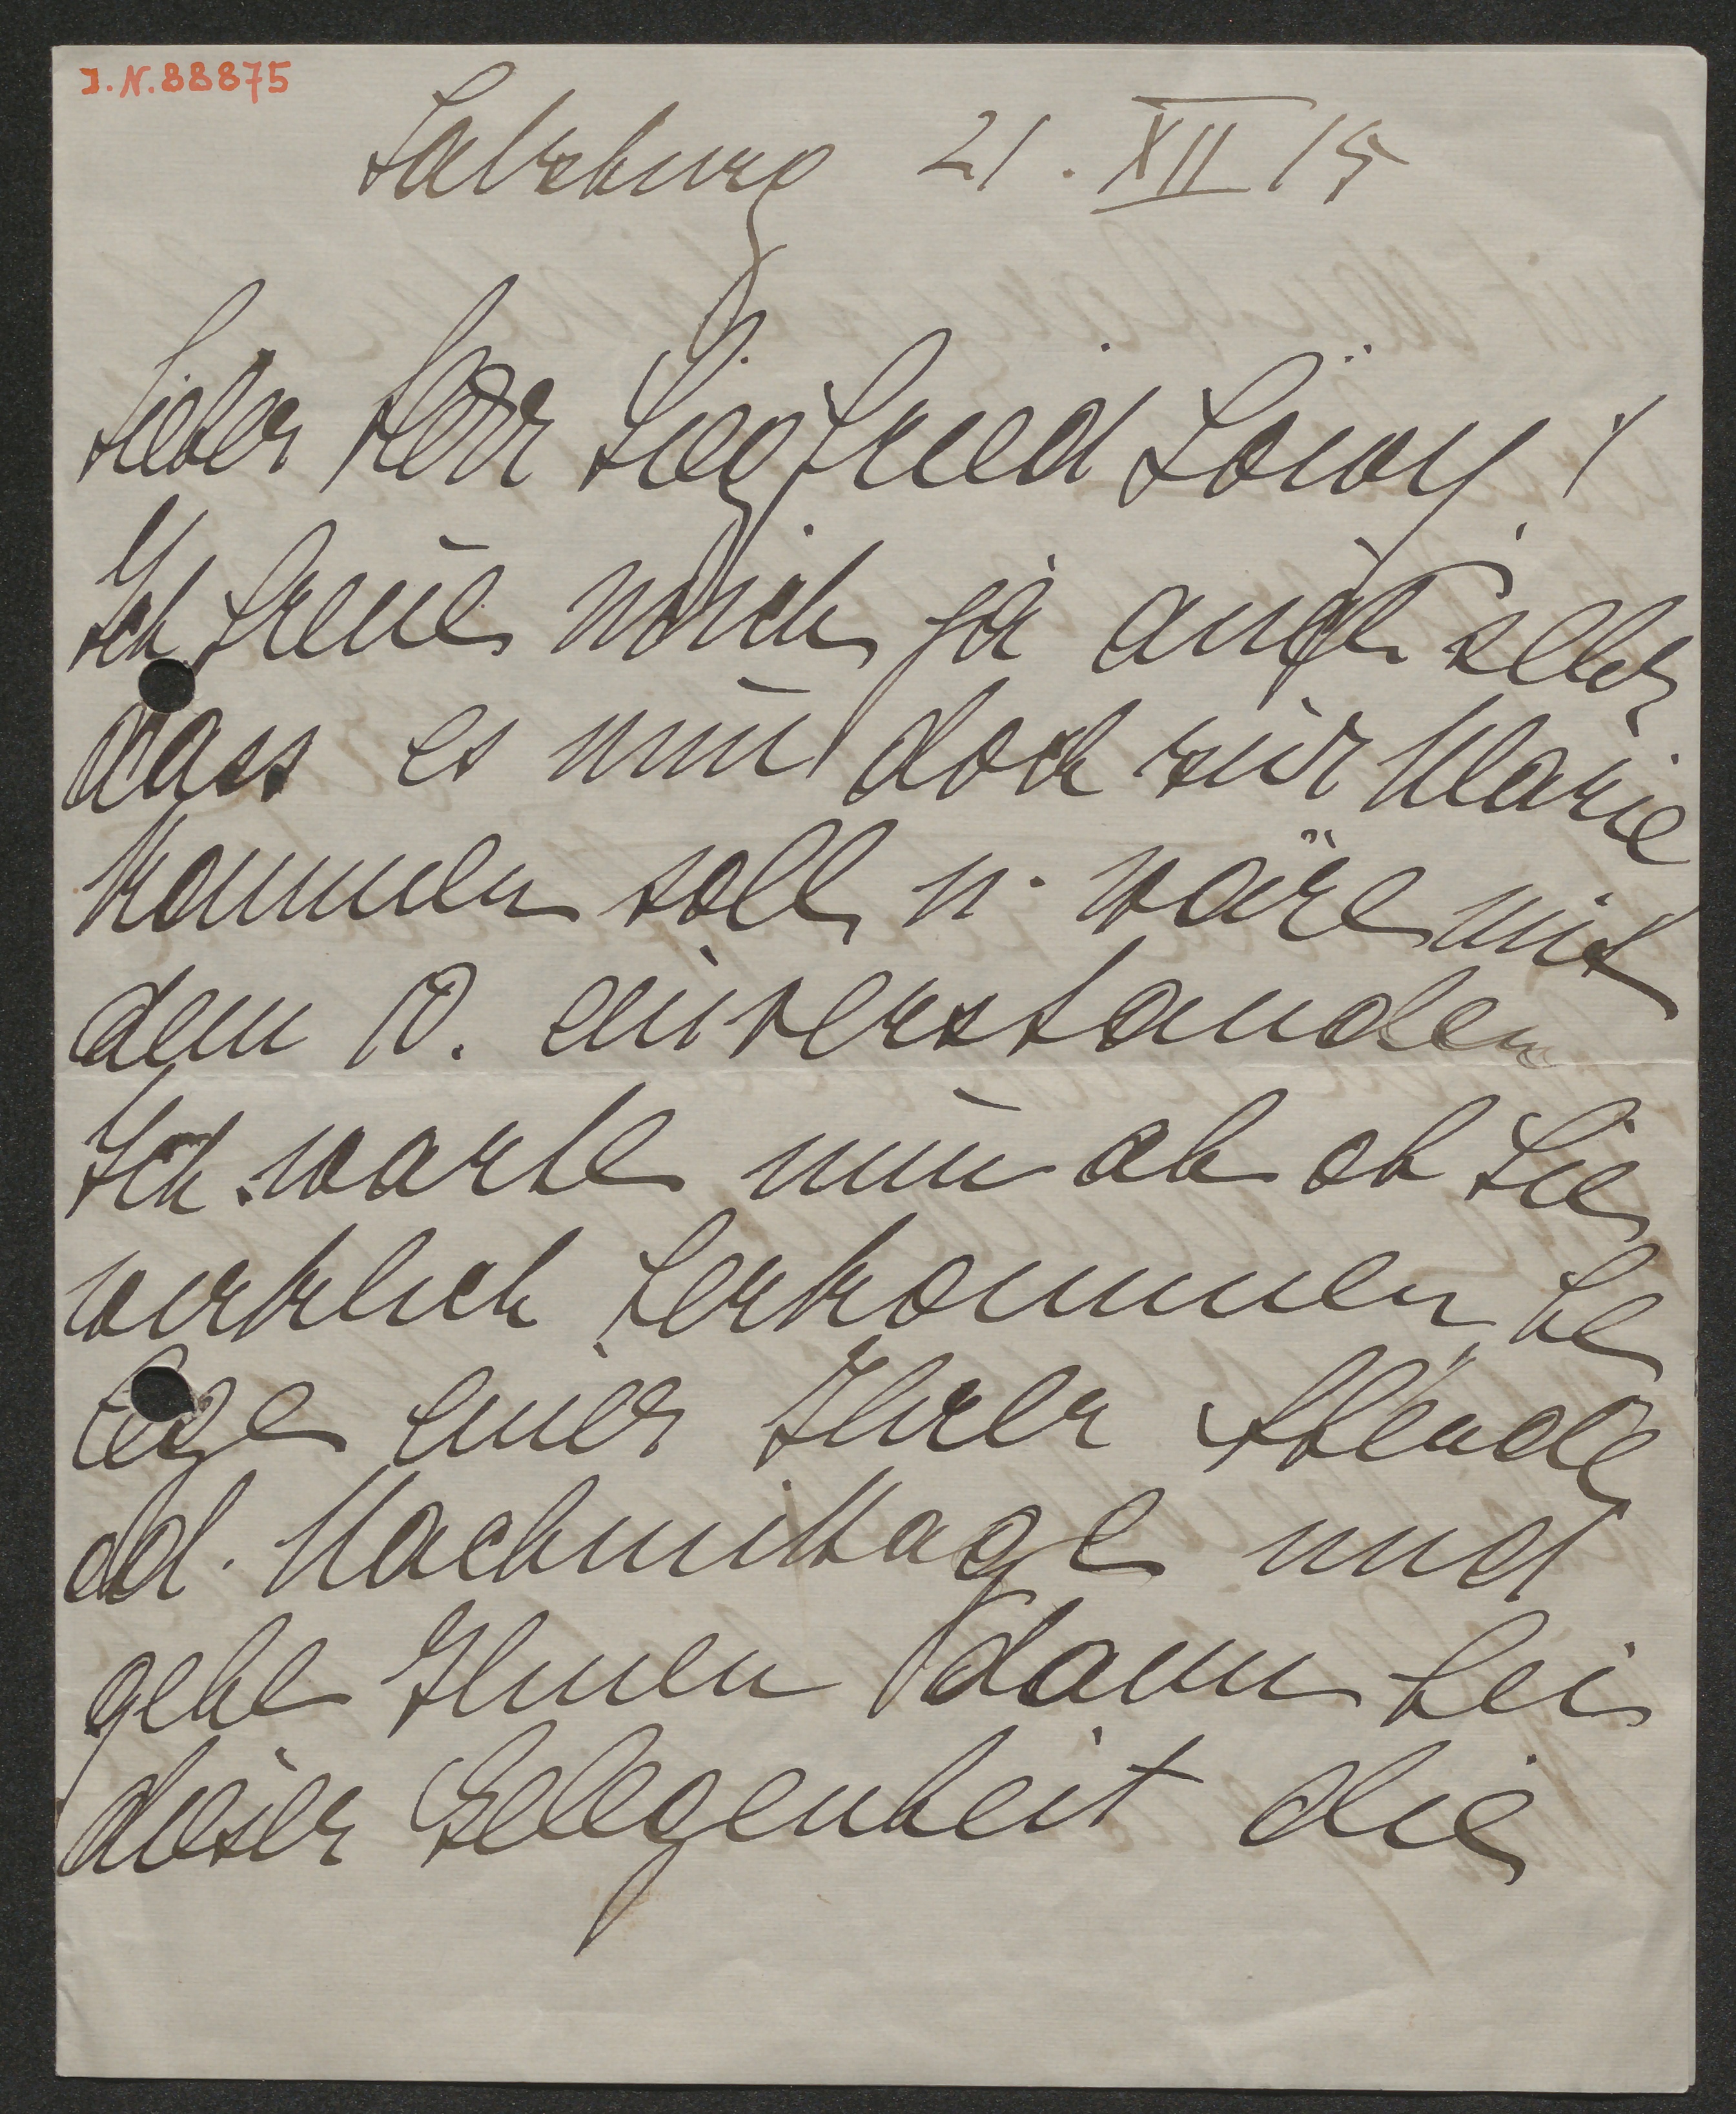 I.N. 88875
Salzburg 21. XII 15
Lieber Herr Siegfried Löwy!
Ich freue mich ja auch selbst
dass es nun doch zur Marie
kommen soll u. wäre mit
dem 10. einverstanden
Ich warte nun ab ob Sie
wirklich herkommen, be
lege einen Ihrer Abende
od. Nachmittage und
gebe Ihnen dann bei
dieser Gelegenheit die